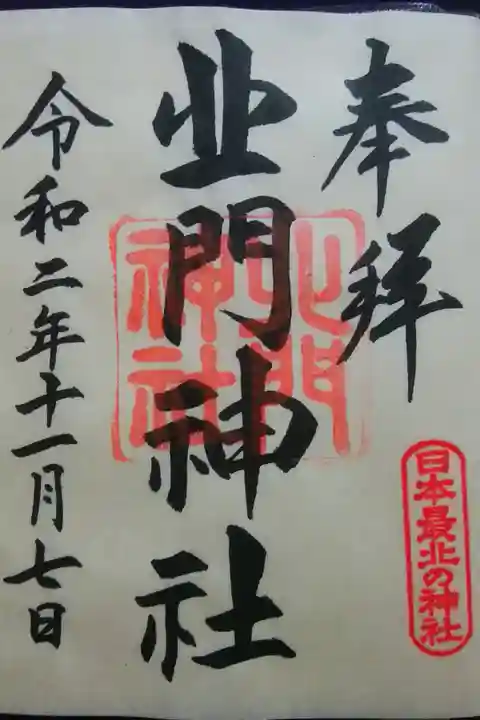 奉拝
日本最北の神社
北門神社
北門神社
令和二年十一月七日